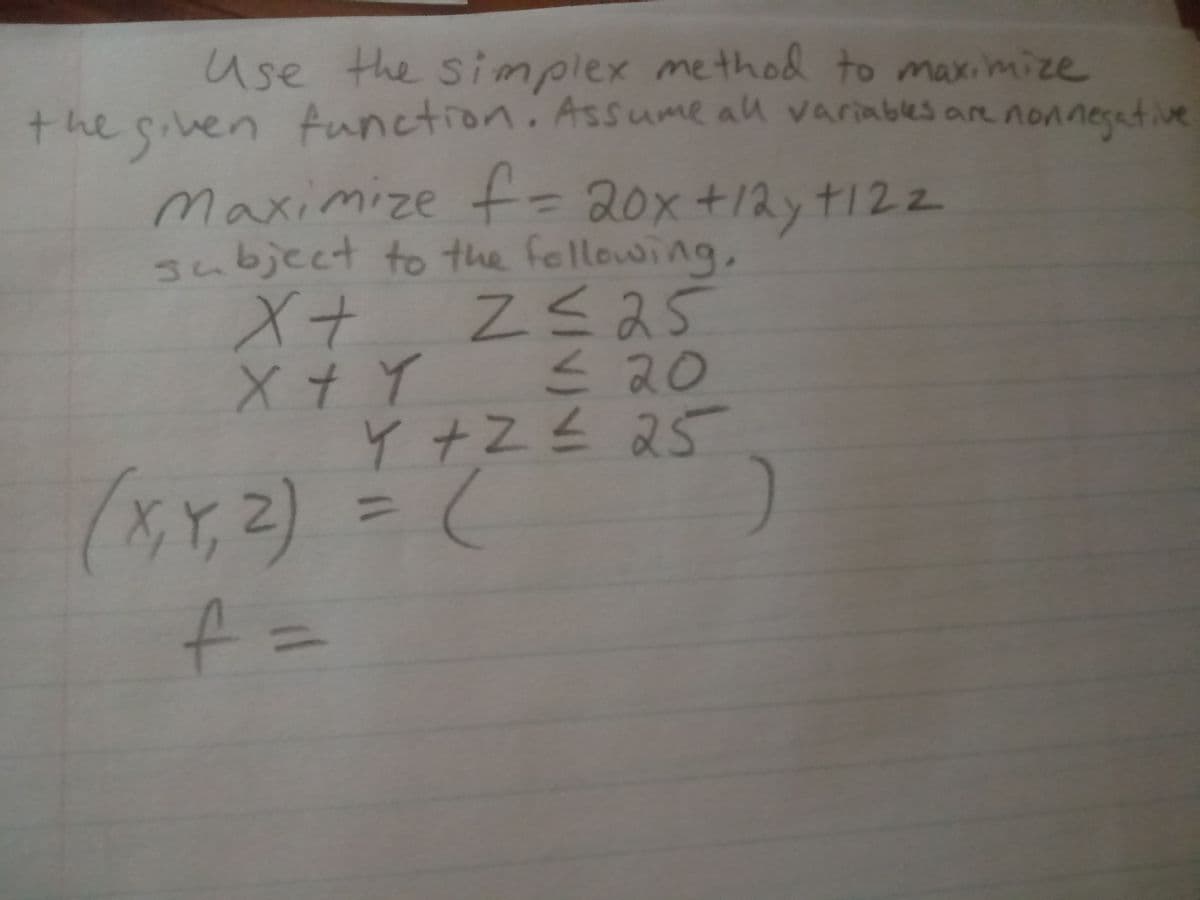 Use the simplex method to maximize
the given function. Assume all variables are nonnegative
Maximize f = 20x + 12y + 12z
subject to the following.
X + Z ≤ 25
X + Y ≤ 20
Y + Z ≤ 25
(X, Y, Z) = ( )
f =